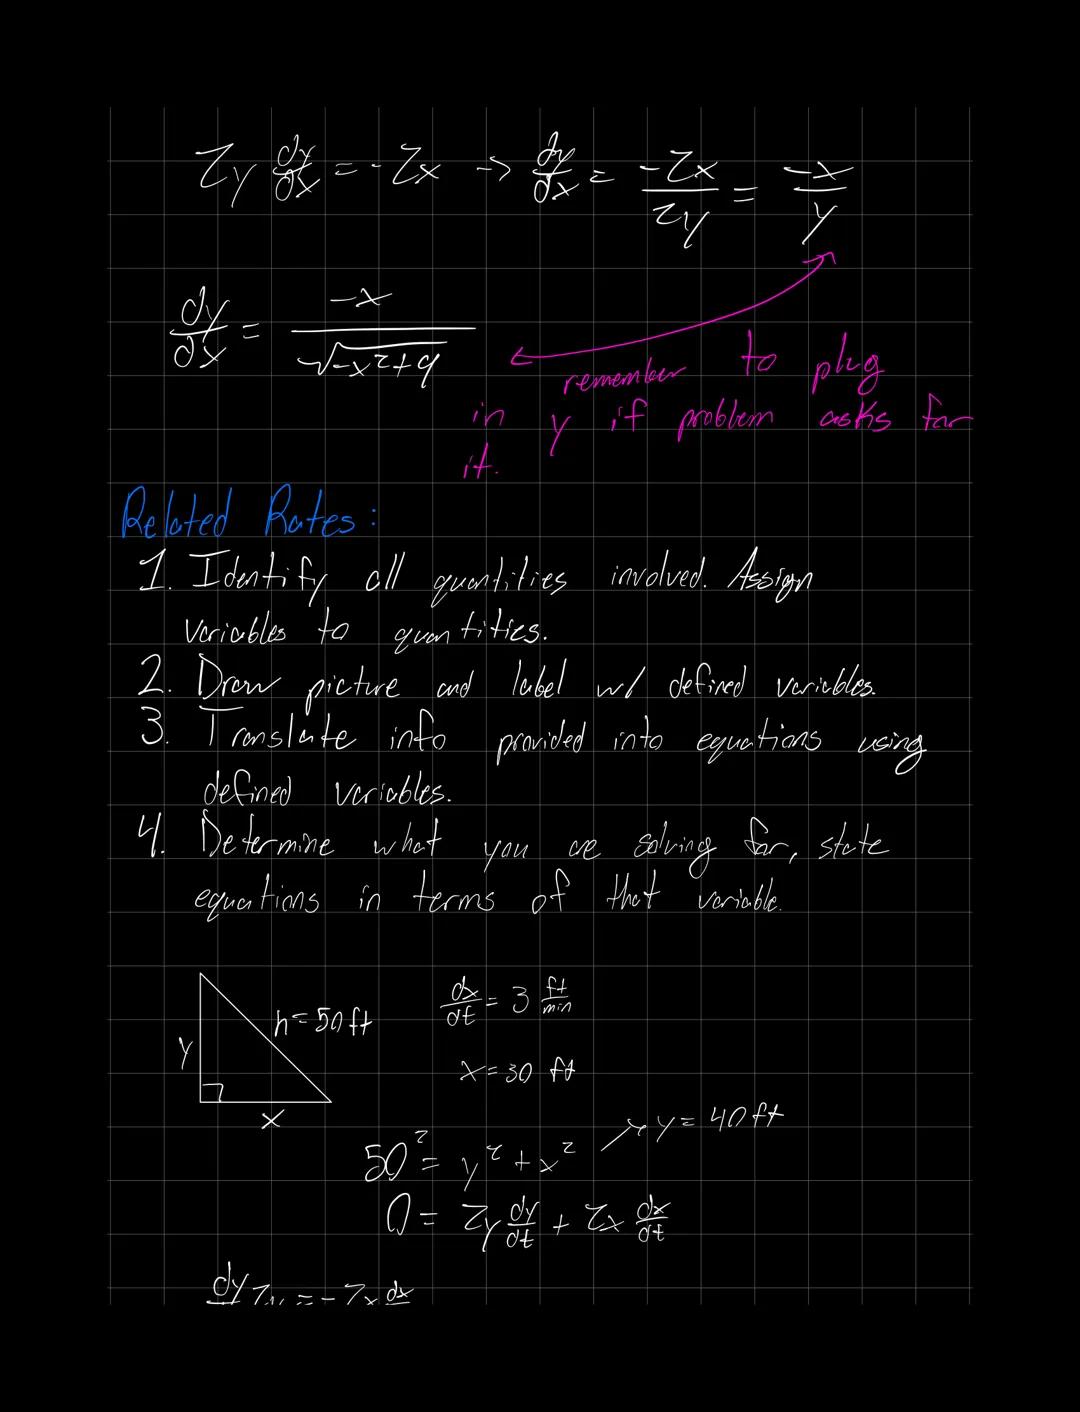 2y dy/dx = -2x -> dy/dx = -2x/2y = -x/y
dy/dx = -x/√-x²+9
remember to plug
in y if problem asks for
it.
Related Rates:
1. Identify all quantities involved. Assign
variables to quantities.
2. Draw picture and label w/ defined variables.
3. Translate info provided into equations using
defined variables.
4. Determine what you are solving for, state
equations in terms of that variable.
dx/dt = 3 ft/min
h = 50 ft
y
x = 30 ft
x
y = 40 ft
50² = y² + x²
0 = 2y dy/dt + 2x dx/dt
dy 2y = -2x dx